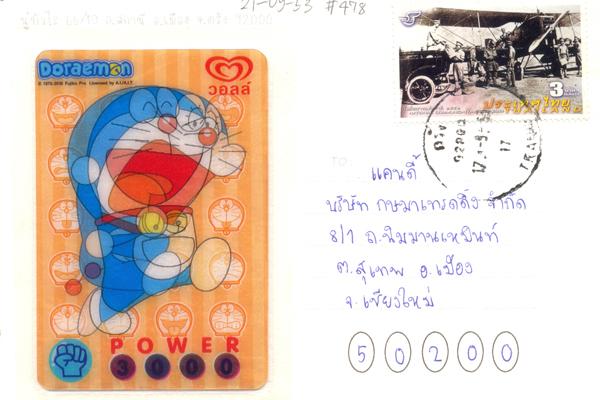 21-09-53 #478
Doraemon
วอลล์
POWER
3000
3
ประเทศไทย
17
TO:
แคนดี้
บริษัท กษมาเทรดดิ้ง จำกัด
8/1 ถ.นิมมานเหมินท์
ต.สุเทพ อ.เมือง
จ.เชียงใหม่
50200